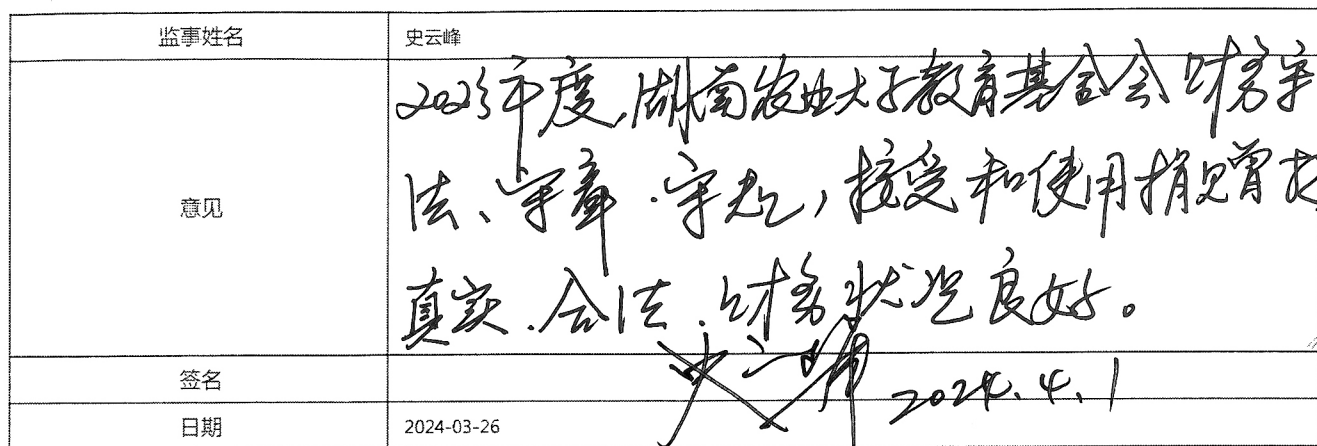 监事姓名 史云峰
意见
2023年度,湖南农业大学教育基金会财务守
法、守章、守规,接受和使用捐赠
真实、合法、财务状况良好。
签名 史云峰 2024.4.1
日期 2024-03-26